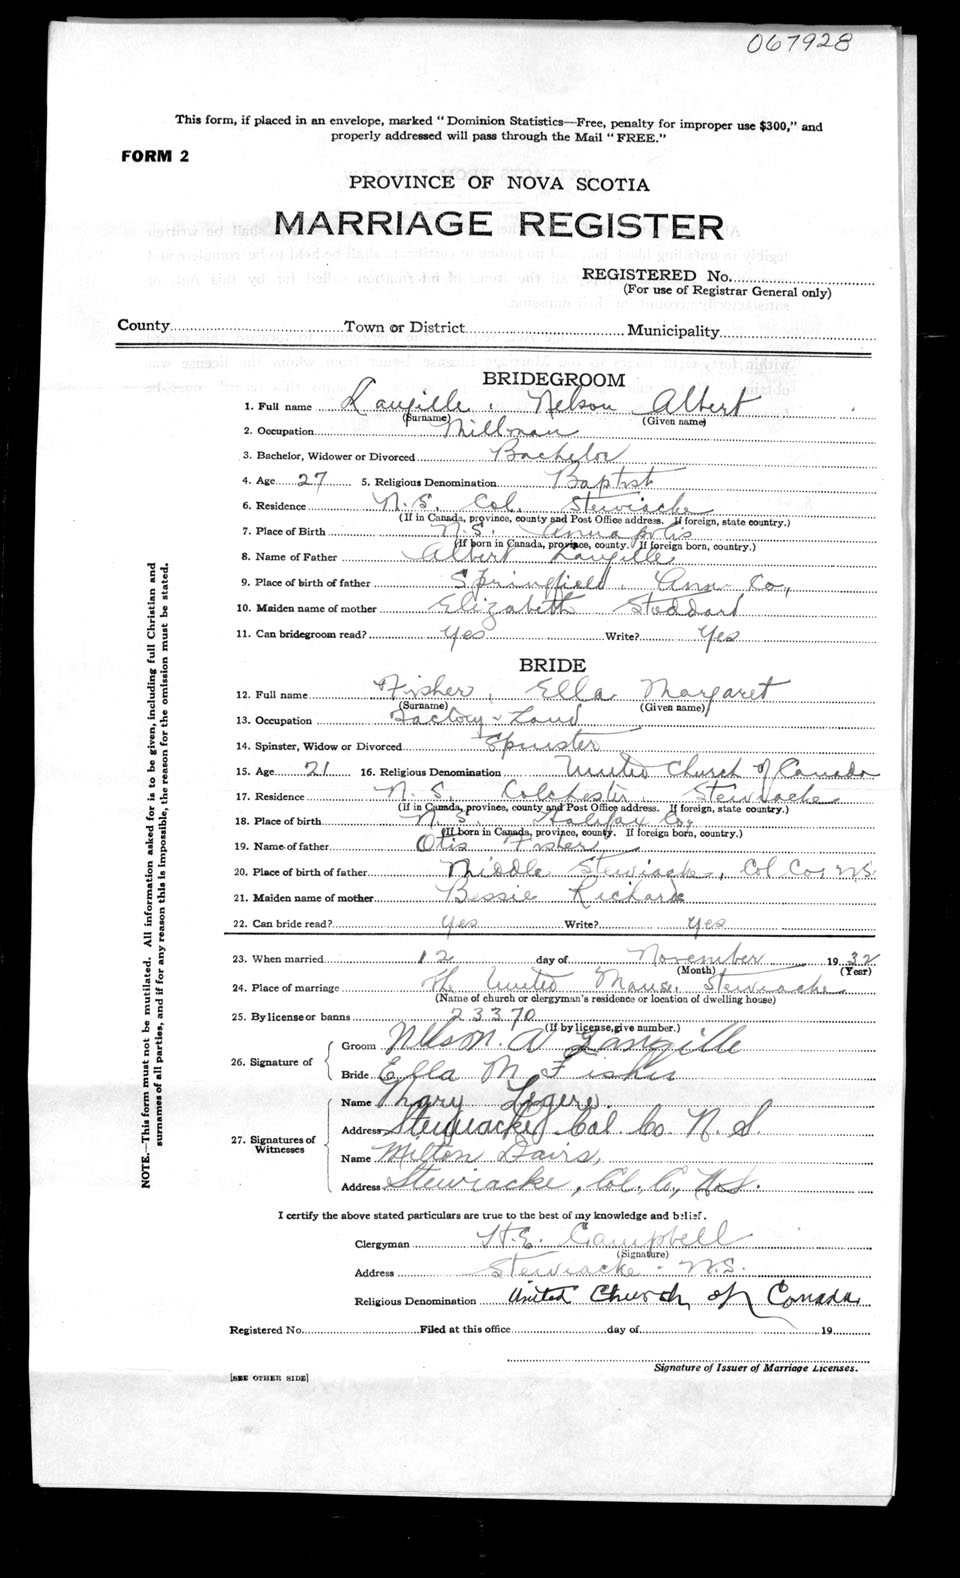 067928
This form, if placed in an envelope, marked "Dominion Statistics—Free, penalty for improper use $300," and
properly addressed will pass through the Mail "FREE."
FORM 2
PROVINCE OF NOVA SCOTIA
MARRIAGE REGISTER
REGISTERED No.
(For use of Registrar General only)
County Town or District Municipality
BRIDEGROOM
1. Full name Langille, Nelson Albert
(Surname) (Given name)
2. Occupation Millman
3. Bachelor, Widower or Divorced Bachelor
4. Age 27 5. Religious Denomination Baptist
6. Residence N.S. Col. Stewiacke
(If in Canada, province, county and Post Office address. If foreign, state country.)
7. Place of Birth N.S. Annapolis
(If born in Canada, province, county. If foreign born, country.)
8. Name of Father Albert Langille
9. Place of birth of father Springfield, Ann Co,
10. Maiden name of mother Elizabeth Stoddard
11. Can bridegroom read? Yes Write? Yes
BRIDE
12. Full name Fisher, Ella Margaret
(Surname) (Given name)
13. Occupation Factory
14. Spinster, Widow or Divorced Spinster
15. Age 21 16. Religious Denomination United Church of Canada
17. Residence N.S. Colchester, Stewiacke
(If in Canada, province, county and Post Office address. If foreign, state country.)
18. Place of birth N.S. Halifax Co,
(If born in Canada, province, county. If foreign born, country.)
19. Name of father Otis Fisher
20. Place of birth of father Middle Stewiacke, Col Co, N.S.
21. Maiden name of mother Bessie
22. Can bride read? Yes Write? Yes
23. When married 12 day of November 1932
(Month) (Year)
24. Place of marriage The United Manse, Stewiacke
(Name of church or clergyman's residence or location of dwelling house)
25. By license or banns 23370
(If by license, give number.)
26. Signature of Groom Nelson. A Langille
Bride Ella M Fisher
27. Signatures of Witnesses Name Mary
Address Stewiacke Col Co N.S.
Name Milton
Address Stewiacke, Col. Co, N.S.
I certify the above stated particulars are true to the best of my knowledge and belief.
Clergyman H.E. Campbell
(Signature)
Address Stewiacke - N.S.
Religious Denomination United Church of Canada
Registered No. Filed at this office day of 19
Signature of Issuer of Marriage Licenses.
[SEE OTHER SIDE]
NOTE.—This form must not be mutilated. All information asked for is to be given, including full Christian and
surnames of all parties, and if for any reason this is impossible, the reason for the omission must be stated.